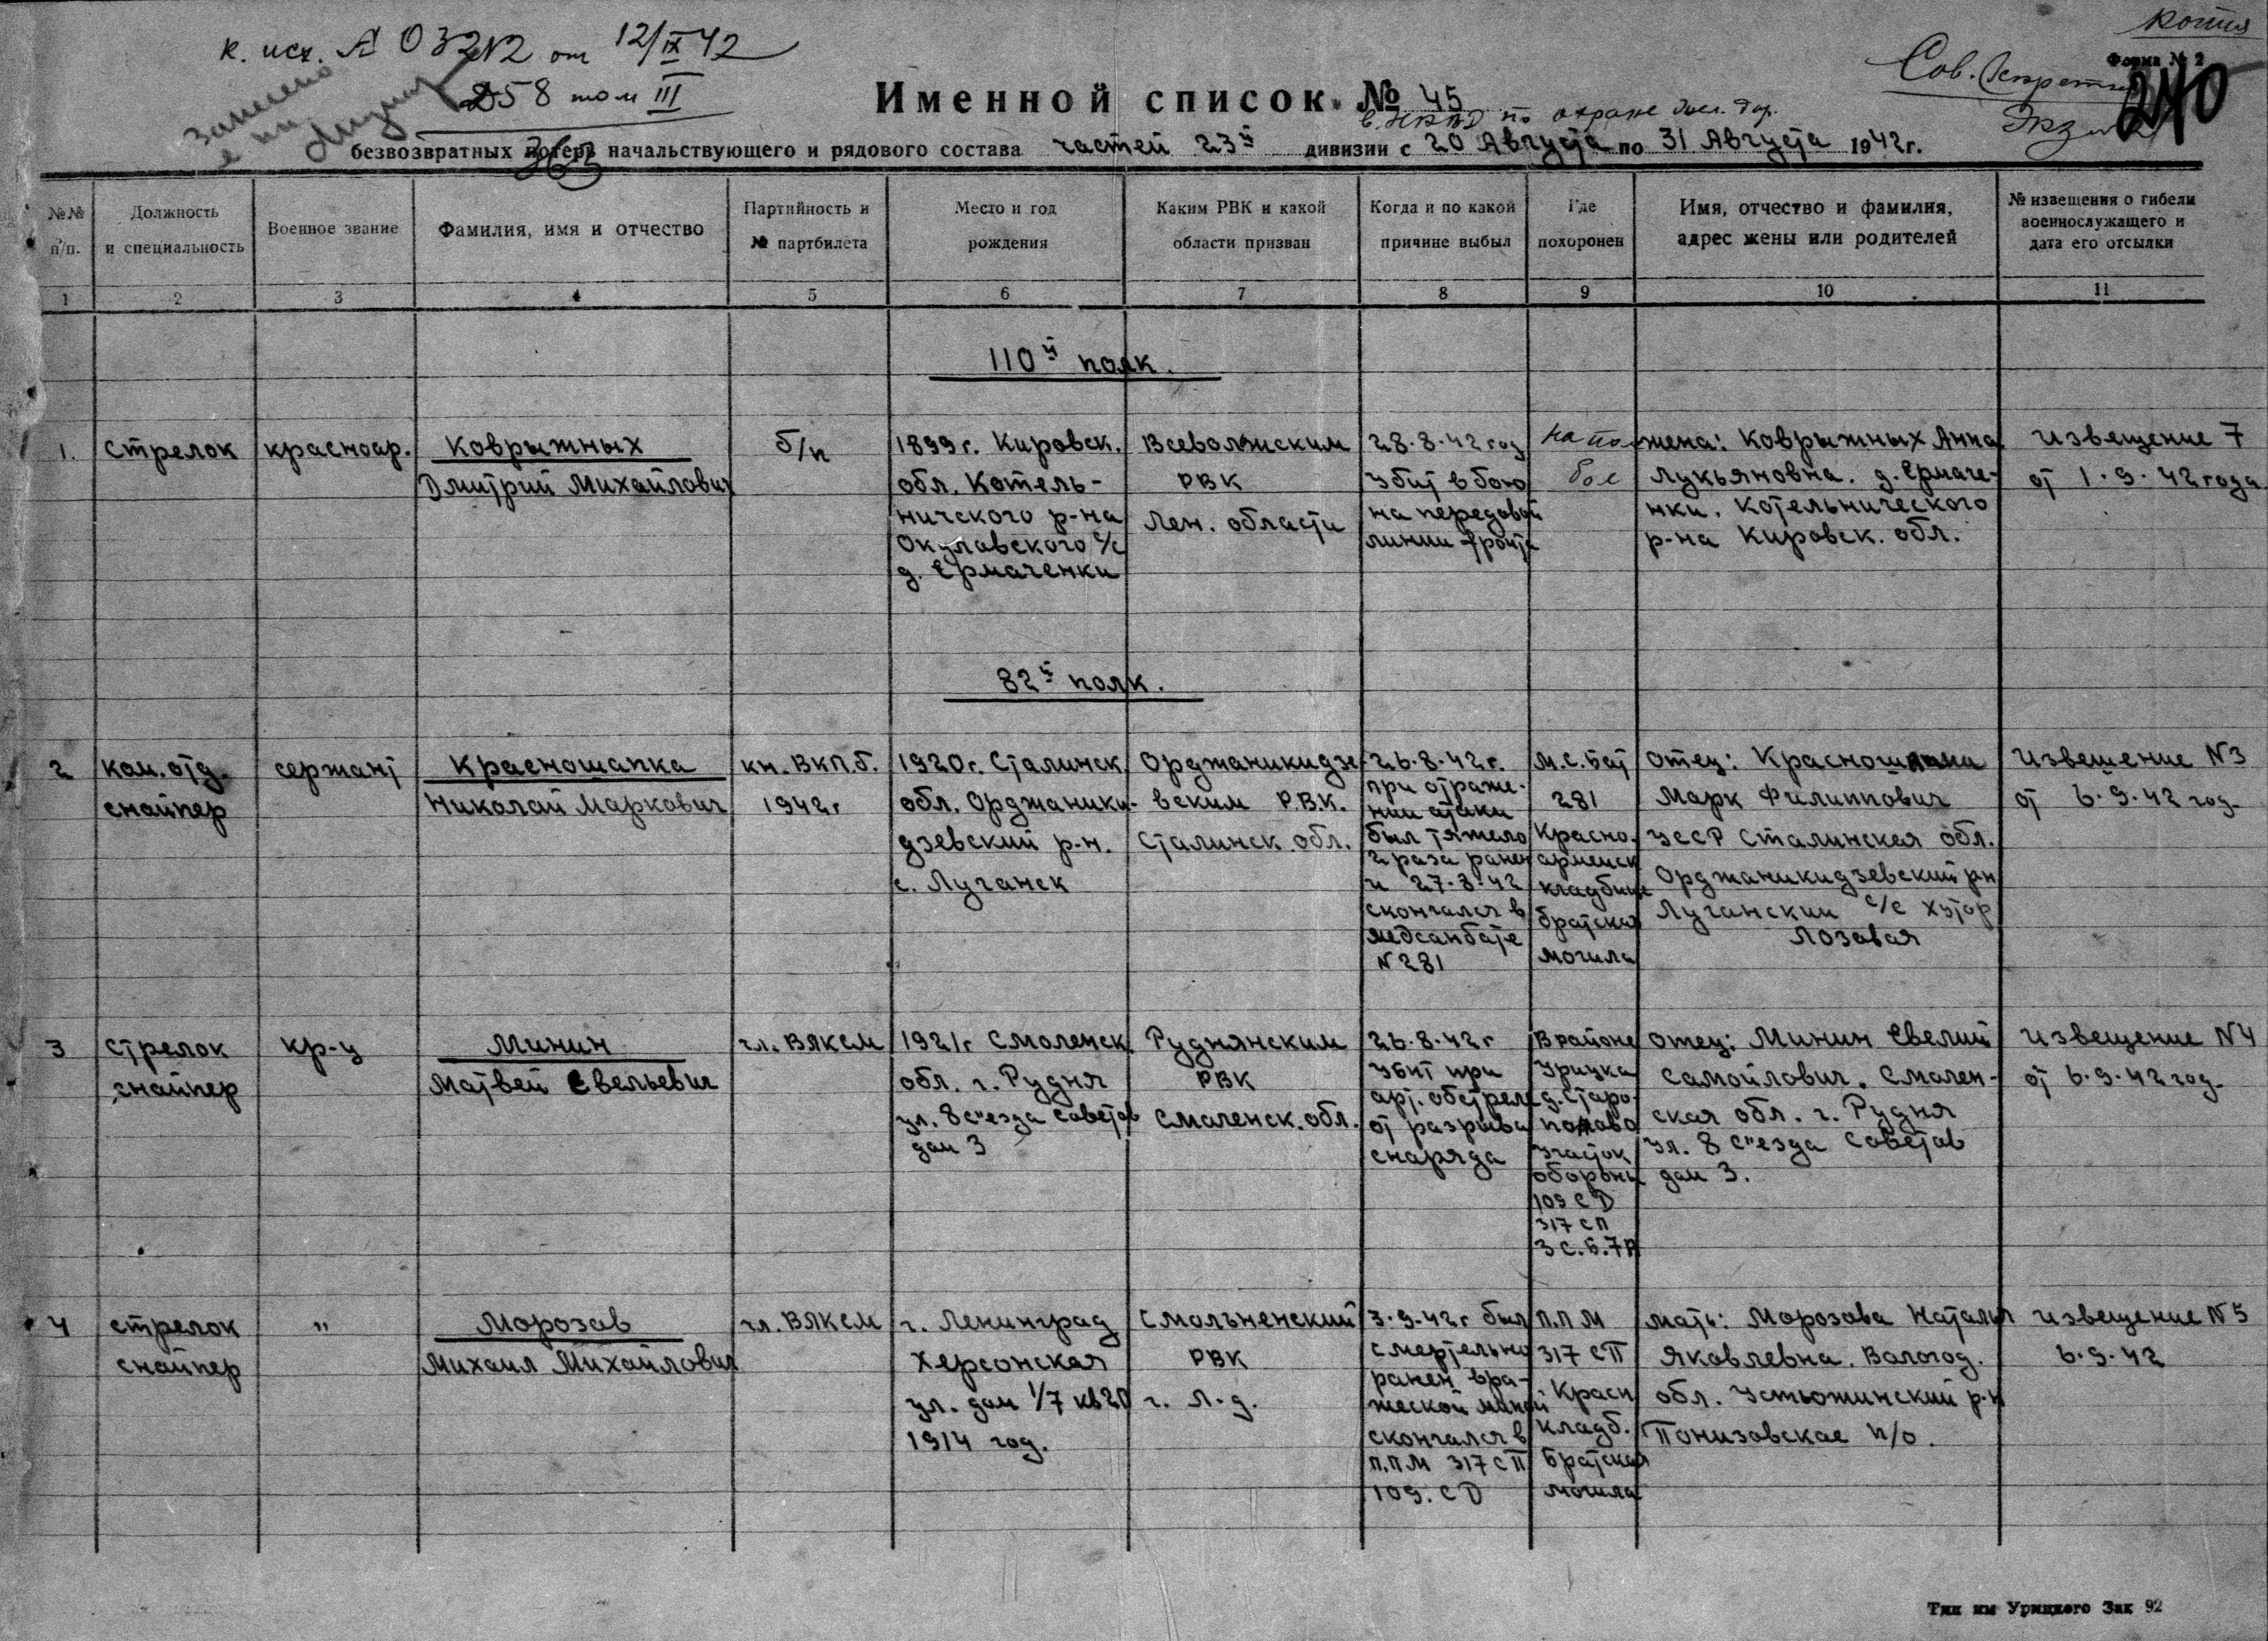 копия
к. исх. А 03212 от 12/IX 42
Сов. Секретно
Форма № 2
258 том III
240
Именной список № 45
в. НКВД по охране жел. дор.
безвозвратных потерь начальствующего и рядового состава частей 23й дивизии с 20 Августа по 31 Августа 1942 г.
363
№№ п/п.
Должность и специальность
Военное звание
Фамилия, имя и отчество
Партийность и № партбилета
Место и год рождения
Каким РВК и какой области призван
Когда и по какой причине выбыл
Где похоронен
Имя, отчество и фамилия, адрес жены или родителей
№ извещения о гибели военнослужащего и дата его отсылки
1 2 3 4 5 6 7 8 9 10 11
110й полк.
1.
стрелок
красноар.
Коврыжных
Дмитрий Михайлович
б/п
1899 г. Кировск.
обл. Котель-
ничского р-на
Окуловского с/с
д. Ермаченки
Всеволжским
РВК
Лен. области
28.8.42 год
Убит в бою
на передовой
линии фронта
на по
боя
жена: Коврыжных Анна
Лукьяновна. д. Ермаче-
нки, Котельнического
р-на Кировск. обл.
извещение 7
от 1.9.42 года
82й полк.
2
ком. отд.
снайпер
сержант
Красношапка
Николай Маркович
кн. ВКП.б.
1942 г
1920 г. Сталинск.
обл. Орджаники-
дзевский р-н.
с. Луганск
Орджаникидзе-
вским РВК.
Сталинск. обл.
26.8.42 г.
при отраже-
нии атаки
был тяжело
2 раза ранен
и 27.8.42
скончался в
медсанбате
N 281
М.С. бат
281
Красно-
арменск
кладбище
братская
могила
отец: Красношапка
Марк Филиппович
УССР Сталинская обл.
Орджаникидзевский рн
Луганский с/с хутор
Лозовая
Извещение N3
от 6.9.42 год.
3
стрелок
снайпер
кр-ц
Минин
Матвей Евельевич
чл. ВЛКСМ
1921 г Смоленск.
обл. г. Рудня
ул. 8 с"езда советов
дом 3
Руднянским
РВК
Смоленск. обл.
26.8.42 г
Убит при
арт. обстреле
от разрыва
снаряда
В районе
Урицка
д. Старо-
поново
Участок
обороны
109 СД
317 СП
3 С.Б. 7 Р
отец: Минин Евелий
Самойлович. Смолен-
ская обл. г. Рудня
Ул. 8 с"езда советов
дом 3.
извещение N4
от 6.9.42 год.
4
стрелок
снайпер
"
Морозов
Михаил Михайлович
чл. ВЛКСМ
г. Ленинград
Херсонская
ул. дом 1/7 кв 20
1914 год.
Смольненский
РВК
г. Л-д.
3.9.42 г был
смертельно
ранен вра-
жеской миной
скончался в
П.П.М 317 СП
109. СД
П.П М
317 СП
Красн
кладб.
Братская
могила
мать: Морозова Наталья
Яковлевна. Вологод.
обл. Устюжинский р-н
Понизовское п/о.
извещение N5
6.9.42
Тип им Урицкого Зак 92